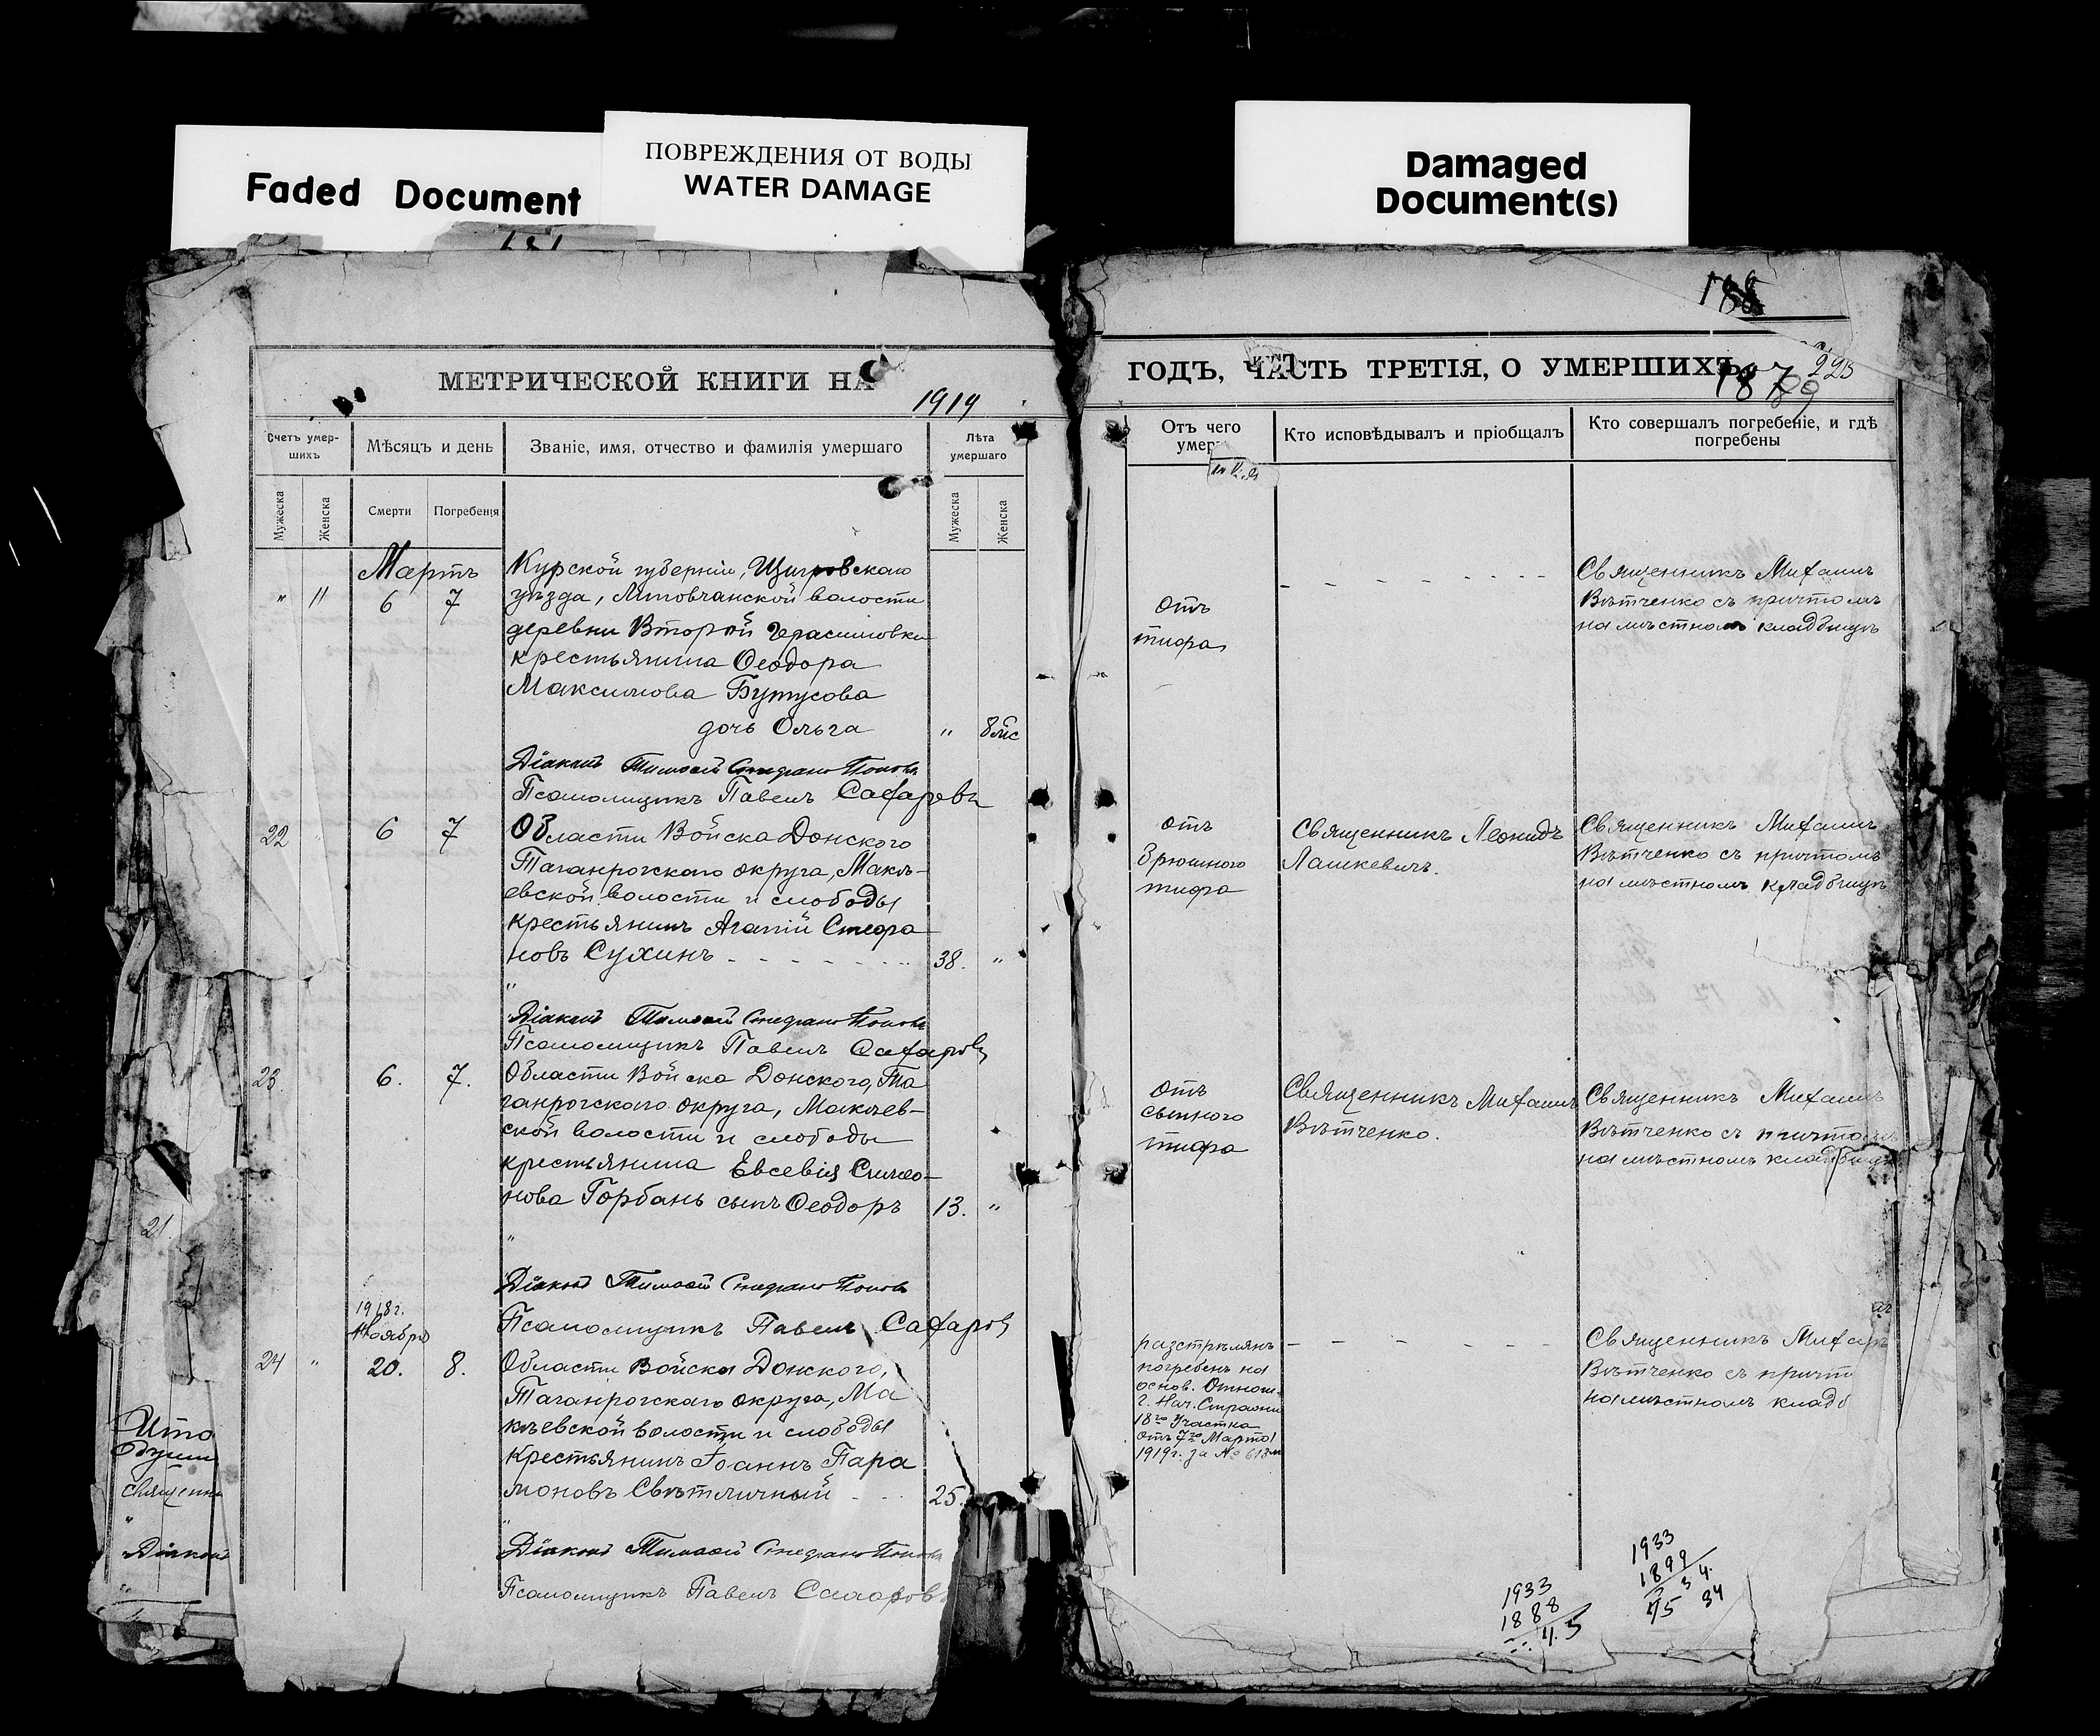 Faded Document
ПОВРЕЖДЕНИЯ ОТ ВОДЫ
WATER DAMAGE
Damaged
Document(s)
МЕТРИЧЕСКОЙ КНИГИ НА
1919
Счетъ умер-
шихъ
Мѣсяцъ и день
Званіе, имя, отчество и фамилія умершаго
Лѣта
умершаго
Мужеска
Женска
Смерти
Погребенія
Мужеска
Женска
Мартъ
" 11 6 7
Курской губерніи, Щигровскаго
уѣзда, Липовчанской волости
деревни Второй Герасимовки
крестьянина Ѳеодора
Максимова Бутусова
дочь Ольга " 8 мс
Діаконъ Тимоѳей Стефановъ Поповъ
Псаломщикъ Павелъ Сафаровъ
22 6 7
Области Войска Донского
Таганрогскаго округа, Макѣ-
евской волости и слободы
крестьянинъ Агапій Стефа
новъ Сухинъ 38. "
Діаконъ Тимоѳей Стефановъ Поповъ
Псаломщикъ Павелъ Сафаровъ
23. 6. 7.
Области Войска Донского, Та
ганрогскаго округа, Макѣев-
ской волости и слободы
крестьянина Евсевія Симео-
нова Горбань сынъ Ѳеодоръ 13. "
Діаконъ Тимоѳей Стефановъ Поповъ
Псаломщикъ Павелъ Сафаровъ
1918 г.
Ноябрь
24 " 20. 8.
Области Войска Донского,
Таганрогскаго округа, Ма
кѣевской волости и слободы
крестьянинъ Іоаннъ Пара
моновъ Свѣтличный 25.
Діаконъ Тимоѳей Стефановъ Поповъ
Псаломщикъ Павелъ Сафаровъ
21.
Ито
Священни
Діаконъ
ГОДЪ, ЧАСТЬ ТРЕТІЯ, О УМЕРШИХЪ
223
Отъ чего
умер
Кто исповѣдывалъ и пріобщалъ
Кто совершалъ погребеніе, и гдѣ
погребены
отъ
тифа
Священникъ Михаилъ
Вѣтченко съ причтомъ
на мѣстномъ кладбищѣ
отъ
брюшного
тифа
Священникъ Леонидъ
Лашкевичъ.
Священникъ Михаилъ
Вѣтченко съ причтомъ
на мѣстномъ кладбищѣ
отъ
сыпного
тифа
Священникъ Михаилъ
Вѣтченко.
Священникъ Михаилъ
Вѣтченко съ причтомъ
на мѣстномъ кладбищѣ
разстрѣлянъ
погребенъ на
основ. Отнош.
г. Нач. Стражи
18го Участка
отъ 7го Марта
1919 г. за № 613
Священникъ Михаилъ
Вѣтченко съ причт
на мѣстномъ кладб
1933
1888
45
1933
1899
34
45 34